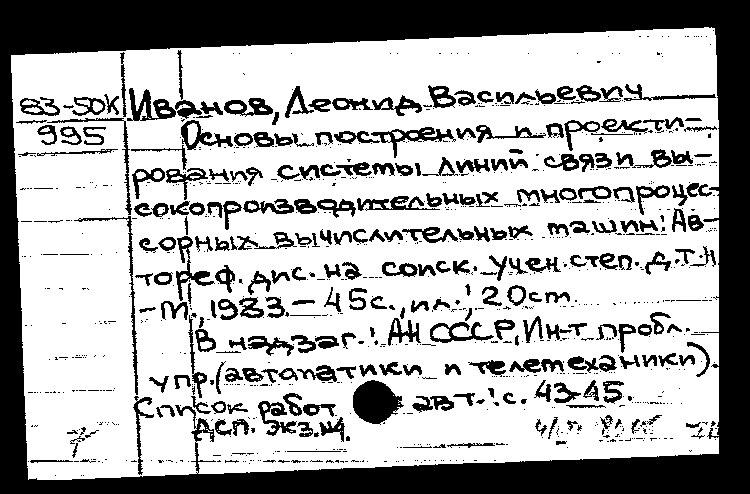 83-50к Иванов, Леонид Васильевич
995 Основы построения и проекти-
рования системы линий связи вы-
сокопроизводительных многопроцес-
сорных вычислительных машин: Ав-
тореф. дис. на соиск. учен. степ. д.т.н
-М., 1983. - 45с., ил.; 20см.
В надзаг.: АН СССР, Ин-т пробл.
упр. (автоматики и телемеханики).
Список работ авт.: с. 43-45.
ДСП. Экз.№4.